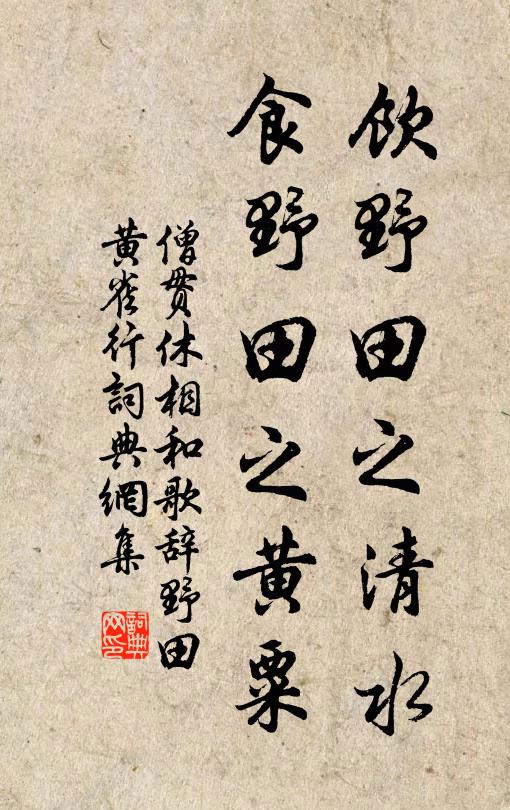 飲野田之清水
食野田之黃粟
僧貫休相和歌辞野田
黃雀行詞典網集
詞典
网印